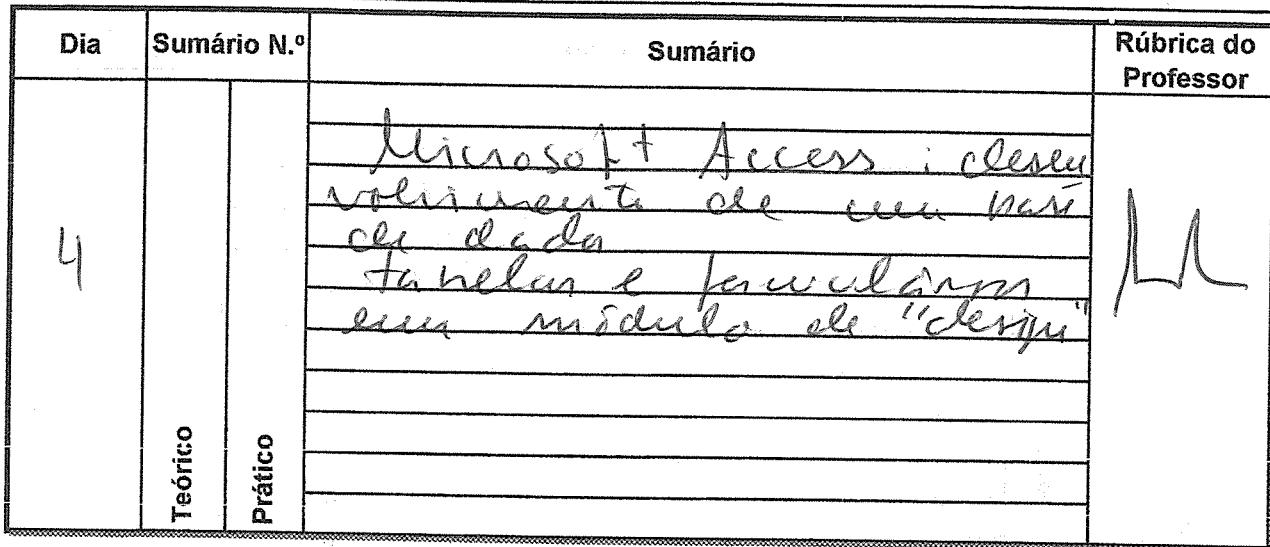 Dia
Sumário N.º
Sumário
Rúbrica do
Professor
4
Teórico
Prático
Microsoft Access : desen
volvimento de uma base
de dados
tabelas e formulários
em módulo de "design"